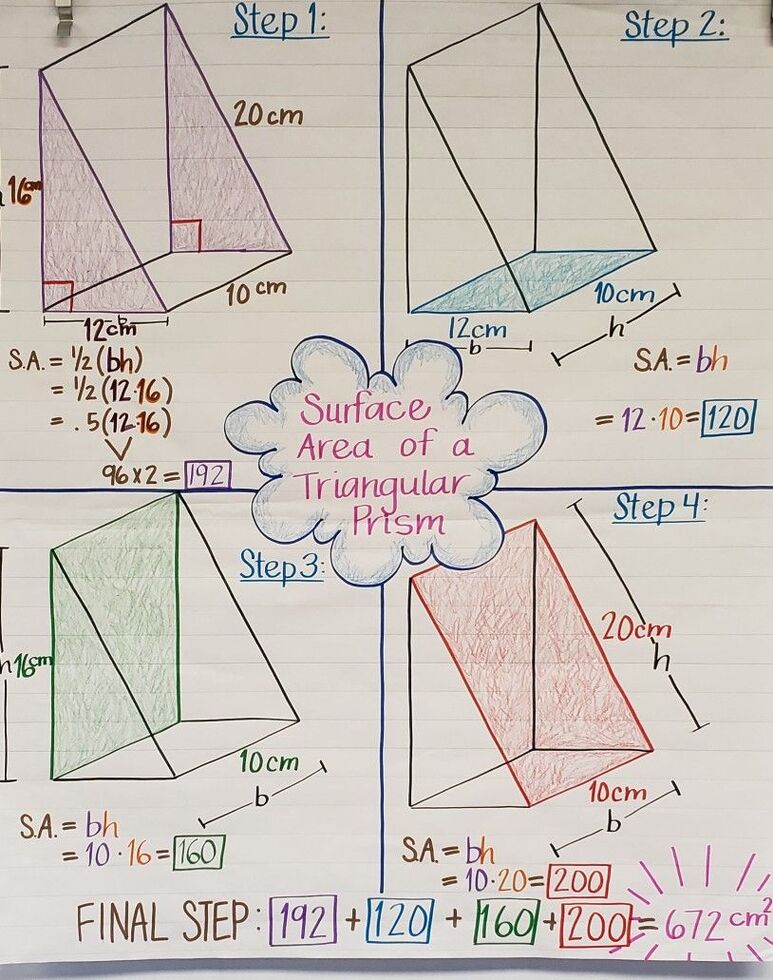 Step 1:
20cm
16cm
10 cm
12cm
b
S.A. = ½(bh)
= ½(12·16)
= .5(12·16)
96 x 2 = 192
Step 2:
10cm
12cm
h
b
S.A. = bh
= 12 · 10 = 120
Surface
Area of a
Triangular
Prism
Step 3:
h 16cm
10cm
b
S.A. = bh
= 10 · 16 = 160
Step 4:
20cm
h
10cm
b
S.A. = bh
= 10·20 = 200
FINAL STEP: 192 + 120 + 160 + 200 = 672 cm²